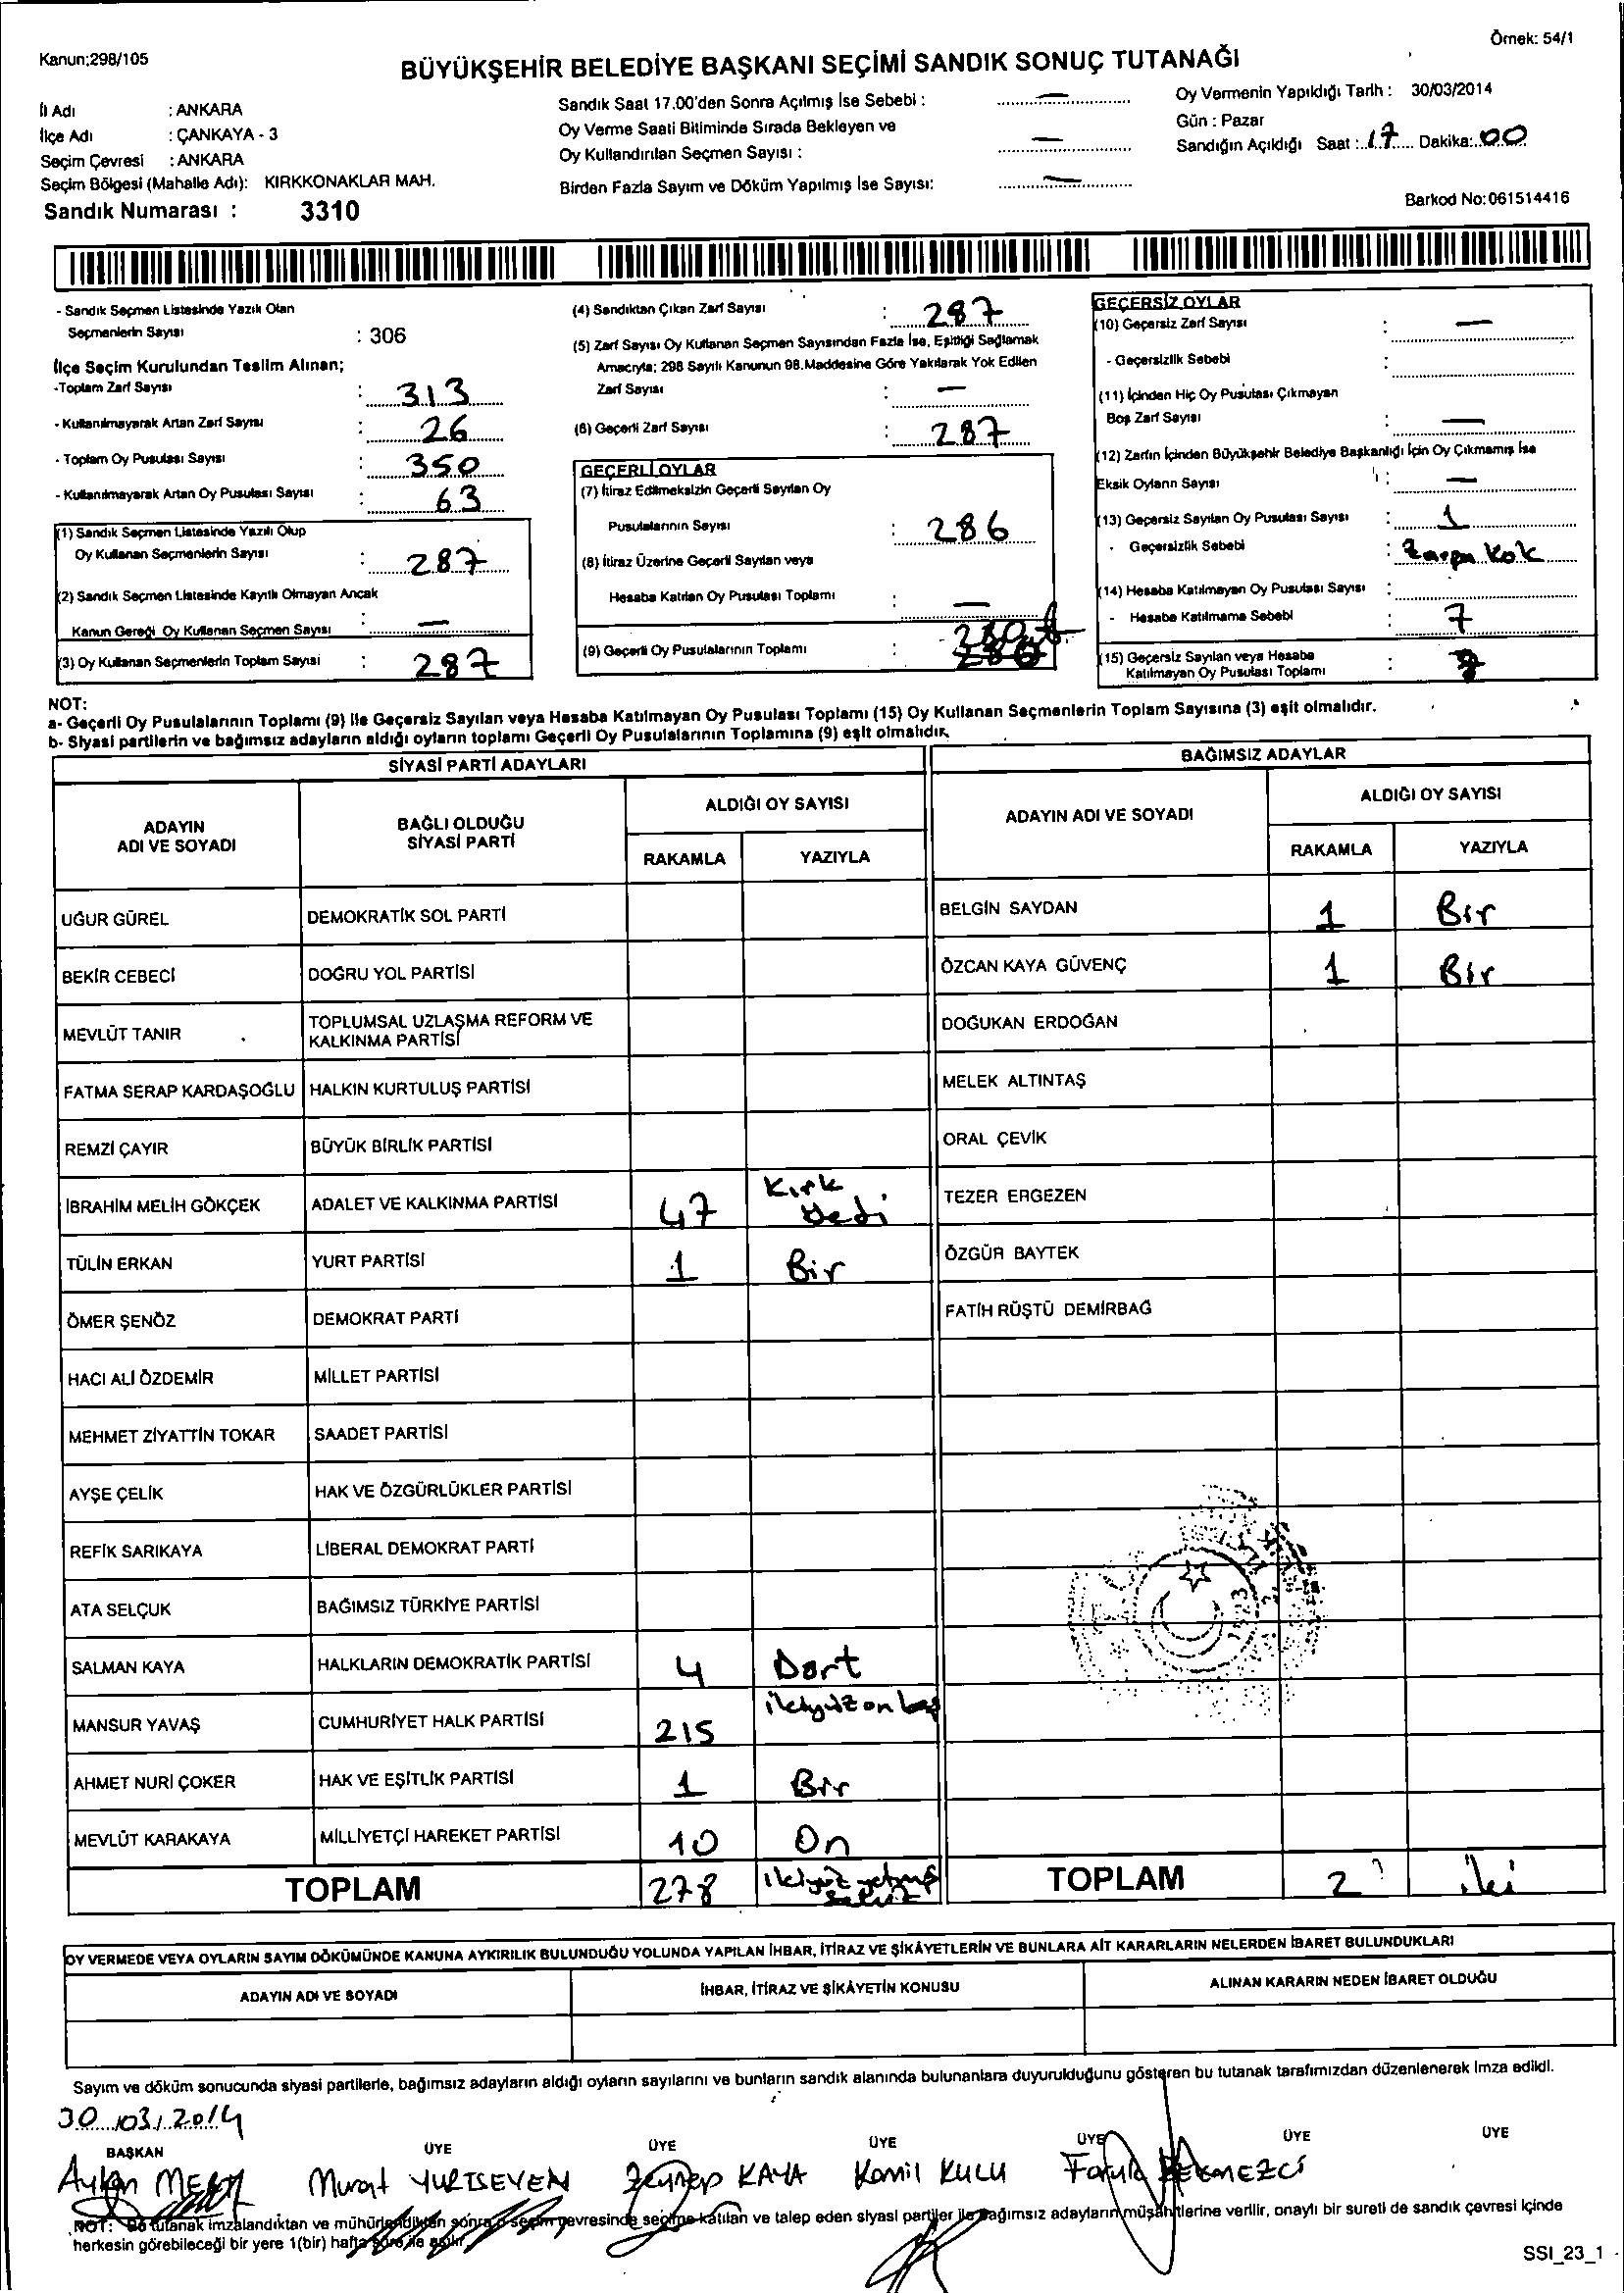 Kanun;298/105
Örnek: 54/1
BÜYÜKŞEHİR BELEDİYE BAŞKANI SEÇİMİ SANDIK SONUÇ TUTANAĞI
İl Adı : ANKARA
İlçe Adı : ÇANKAYA - 3
Seçim Çevresi : ANKARA
Seçim Bölgesi (Mahalle Adı): KIRKKONAKLAR MAH.
Sandık Numarası : 3310
Sandık Saat 17.00'den Sonra Açılmış İse Sebebi : —
Oy Verme Saati Bitiminde Sırada Bekleyen ve
Oy Kullandırılan Seçmen Sayısı : —
Birden Fazla Sayım ve Döküm Yapılmış İse Sayısı: —
Oy Vermenin Yapıldığı Tarih : 30/03/2014
Gün : Pazar
Sandığın Açıldığı Saat : 17 Dakika: 00
Barkod No:061514416
- Sandık Seçmen Listesinde Yazılı Olan
Seçmenlerin Sayısı : 306
İlçe Seçim Kurulundan Teslim Alınan;
-Toplam Zarf Sayısı : 313
- Kullanılmayarak Artan Zarf Sayısı : 26
- Toplam Oy Pusulası Sayısı : 350
- Kullanılmayarak Artan Oy Pusulası Sayısı 63
(1) Sandık Seçmen Listesinde Yazılı Olup
Oy Kullanan Seçmenlerin Sayısı : 287
(2) Sandık Seçmen Listesinde Kayıtlı Olmayan Ancak
Kanun Gereği Oy Kullanan Seçmen Sayısı : —
(3) Oy Kullanan Seçmenlerin Toplam Sayısı : 287
(4) Sandıktan Çıkan Zarf Sayısı : 287
(5) Zarf Sayısı Oy Kullanan Seçmen Sayısından Fazla İse, Eşitliği Sağlamak
Amacıyla; 298 Sayılı Kanunun 98.Maddesine Göre Yakılarak Yok Edilen
Zarf Sayısı : —
(6) Geçerli Zarf Sayısı : 287
GEÇERLİ OYLAR
(7) İtiraz Edilmeksizin Geçerli Sayılan Oy
Pusulalarının Sayısı : 286
(8) İtiraz Üzerine Geçerli Sayılan veya
Hesaba Katılan Oy Pusulası Toplamı : —
(9) Geçerli Oy Pusulalarının Toplamı :
GEÇERSİZ OYLAR
(10) Geçersiz Zarf Sayısı : —
- Geçersizlik Sebebi :
(11) İçinden Hiç Oy Pusulası Çıkmayan
Boş Zarf Sayısı : —
(12) Zarfın İçinden Büyükşehir Belediye Başkanlığı İçin Oy Çıkmamış İse
Eksik Oyların Sayısı : —
(13) Geçersiz Sayılan Oy Pusulası Sayısı : 1
- Geçersizlik Sebebi :
(14) Hesaba Katılmayan Oy Pusulası Sayısı :
- Hesaba Katılmama Sebebi : 7
(15) Geçersiz Sayılan veya Hesaba
Katılmayan Oy Pusulası Toplamı :
NOT:
a- Geçerli Oy Pusulalarının Toplamı (9) ile Geçersiz Sayılan veya Hesaba Katılmayan Oy Pusulası Toplamı (15) Oy Kullanan Seçmenlerin Toplam Sayısına (3) eşit olmalıdır.
b- Siyasi partilerin ve bağımsız adayların aldığı oyların toplamı Geçerli Oy Pusulalarının Toplamına (9) eşit olmalıdır.
SİYASİ PARTİ ADAYLARI
ADAYIN ADI VE SOYADI BAĞLI OLDUĞU SİYASİ PARTİ ALDIĞI OY SAYISI
RAKAMLA YAZIYLA
UĞUR GÜREL DEMOKRATİK SOL PARTİ
BEKİR CEBECİ DOĞRU YOL PARTİSİ
MEVLÜT TANIR TOPLUMSAL UZLAŞMA REFORM VE KALKINMA PARTİSİ
FATMA SERAP KARDAŞOĞLU HALKIN KURTULUŞ PARTİSİ
REMZİ ÇAYIR BÜYÜK BİRLİK PARTİSİ
İBRAHİM MELİH GÖKÇEK ADALET VE KALKINMA PARTİSİ 47 Kırk Yedi
TÜLİN ERKAN YURT PARTİSİ 1 Bir
ÖMER ŞENÖZ DEMOKRAT PARTİ
HACI ALİ ÖZDEMİR MİLLET PARTİSİ
MEHMET ZİYATTİN TOKAR SAADET PARTİSİ
AYŞE ÇELİK HAK VE ÖZGÜRLÜKLER PARTİSİ
REFİK SARIKAYA LİBERAL DEMOKRAT PARTİ
ATA SELÇUK BAĞIMSIZ TÜRKİYE PARTİSİ
SALMAN KAYA HALKLARIN DEMOKRATİK PARTİSİ 4 Dört
MANSUR YAVAŞ CUMHURİYET HALK PARTİSİ 215 ikiyüz on beş
AHMET NURİ ÇOKER HAK VE EŞİTLİK PARTİSİ 1 Bir
MEVLÜT KARAKAYA MİLLİYETÇİ HAREKET PARTİSİ 10 On
TOPLAM 278 ikiyüz yetmiş sekiz
BAĞIMSIZ ADAYLAR
ADAYIN ADI VE SOYADI ALDIĞI OY SAYISI
RAKAMLA YAZIYLA
BELGİN SAYDAN 1 Bir
ÖZCAN KAYA GÜVENÇ 1 Bir
DOĞUKAN ERDOĞAN
MELEK ALTINTAŞ
ORAL ÇEVİK
TEZER ERGEZEN
ÖZGÜR BAYTEK
FATİH RÜŞTÜ DEMİRBAĞ
TOPLAM 2 iki
OY VERMEDE VEYA OYLARIN SAYIM DÖKÜMÜNDE KANUNA AYKIRILIK BULUNDUĞU YOLUNDA YAPILAN İHBAR, İTİRAZ VE ŞİKÂYETLERİN VE BUNLARA AİT KARARLARIN NELERDEN İBARET BULUNDUKLARI
ADAYIN ADI VE SOYADI İHBAR, İTİRAZ VE ŞİKÂYETİN KONUSU ALINAN KARARIN NEDEN İBARET OLDUĞU
Sayım ve döküm sonucunda siyasi partilerle, bağımsız adayların aldığı oyların sayılarını ve bunların sandık alanında bulunanlara duyurulduğunu gösteren bu tutanak tarafımızdan düzenlenerek imza edildi.
30/03/2014
BAŞKAN ÜYE ÜYE ÜYE ÜYE ÜYE ÜYE
Murat YURTSEVEN Zeynep KAYA Kamil KULU Faruk PEKMEZCİ
NOT: Bu tutanak imzalandıktan ve mühürlendikten sonra seçim çevresinde seçime katılan ve talep eden siyasi partiler ile bağımsız adayların müşahitlerine verilir, onaylı bir sureti de sandık çevresi içinde
herkesin görebileceği bir yere 1(bir) hafta süre ile asılır.
SSI_23_1